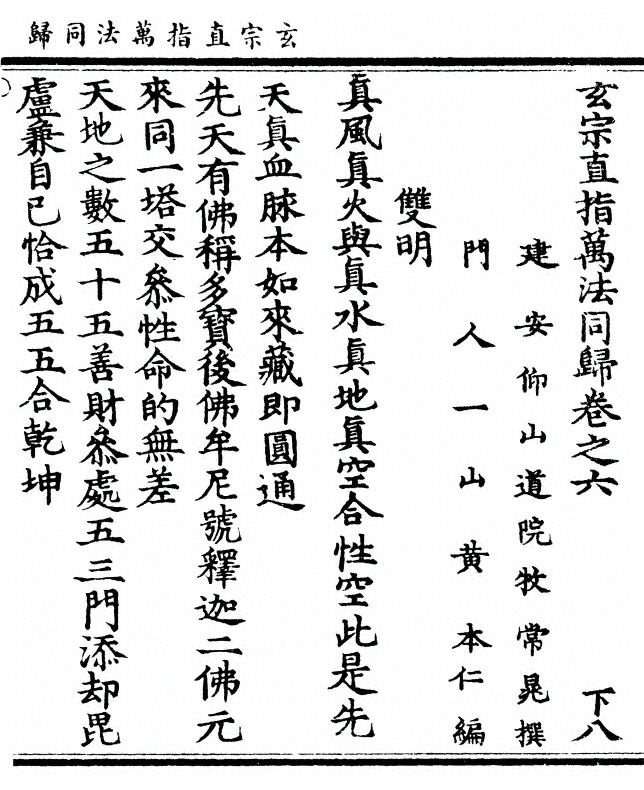 玄宗直指萬法同歸
玄宗直指萬法同歸卷之六 下八
建安仰山道院牧常晁撰
門人一山黃本仁編
雙明
眞風眞火與眞水眞地眞空合性空此是先
天眞血脉本如來藏即圓通
先天有佛稱多寶後佛牟尼號釋迦二佛元
來同一塔交叅性命的無差
天地之數五十五善財叅處五三門添却毘
盧兼自己恰成五五合乾坤